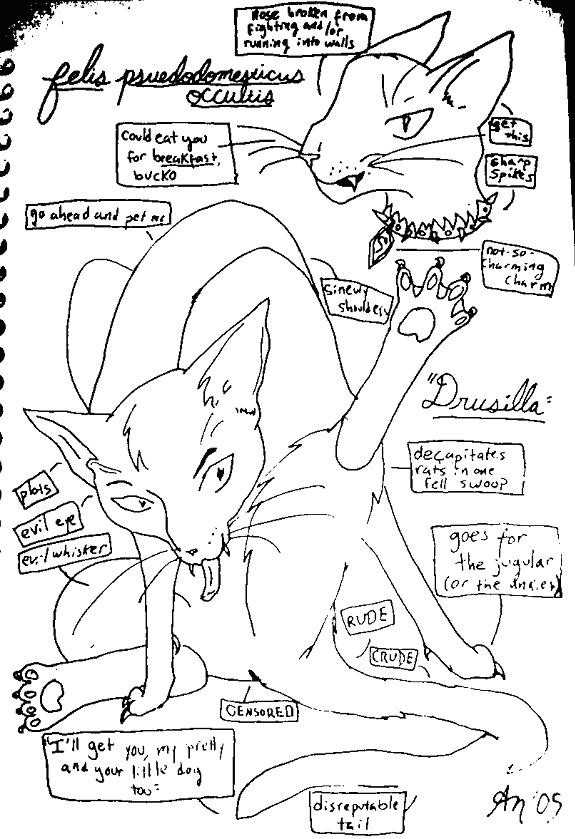 Nose broken from
fighting and/or
running into walls
felis psuedodomesticus
occultis
Could eat you
for breakfast,
bucko
get
this
Sharp
Spikes
go ahead and pet me
not-so-
Charming
Charm
Sinewy
shoulders
"Drusilla"
decapitates
rats in one
fell swoop
plots
evil eye
evil whisker
goes for
the jugular
(or the ankles)
RUDE
CRUDE
CENSORED
"I'll get you, my pretty
and your little dog
too"
disreputable
tail
AM '05